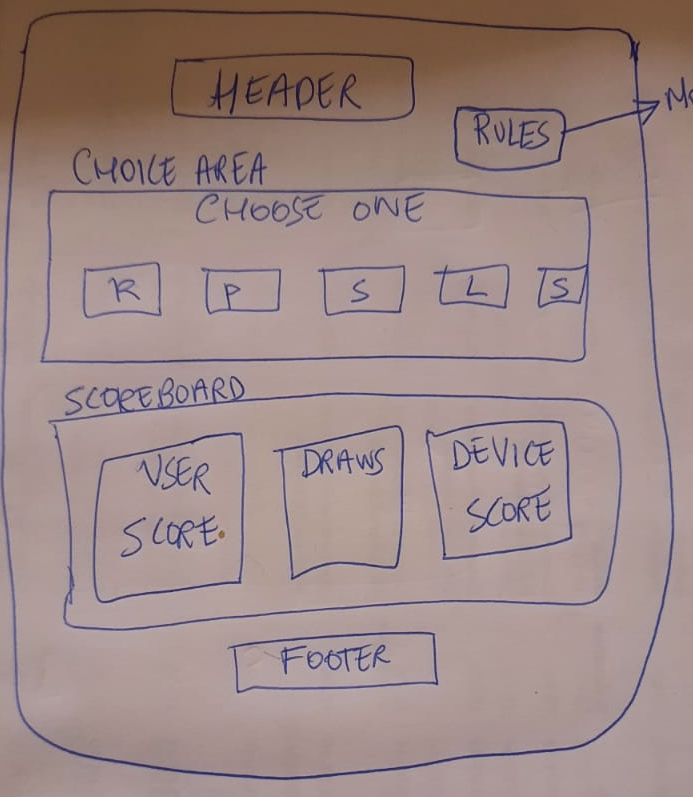 HEADER
RULES
CHOICE AREA
CHOOSE ONE
R P S L S
SCOREBOARD
USER
SCORE.
DRAWS
DEVICE
SCORE
FOOTER